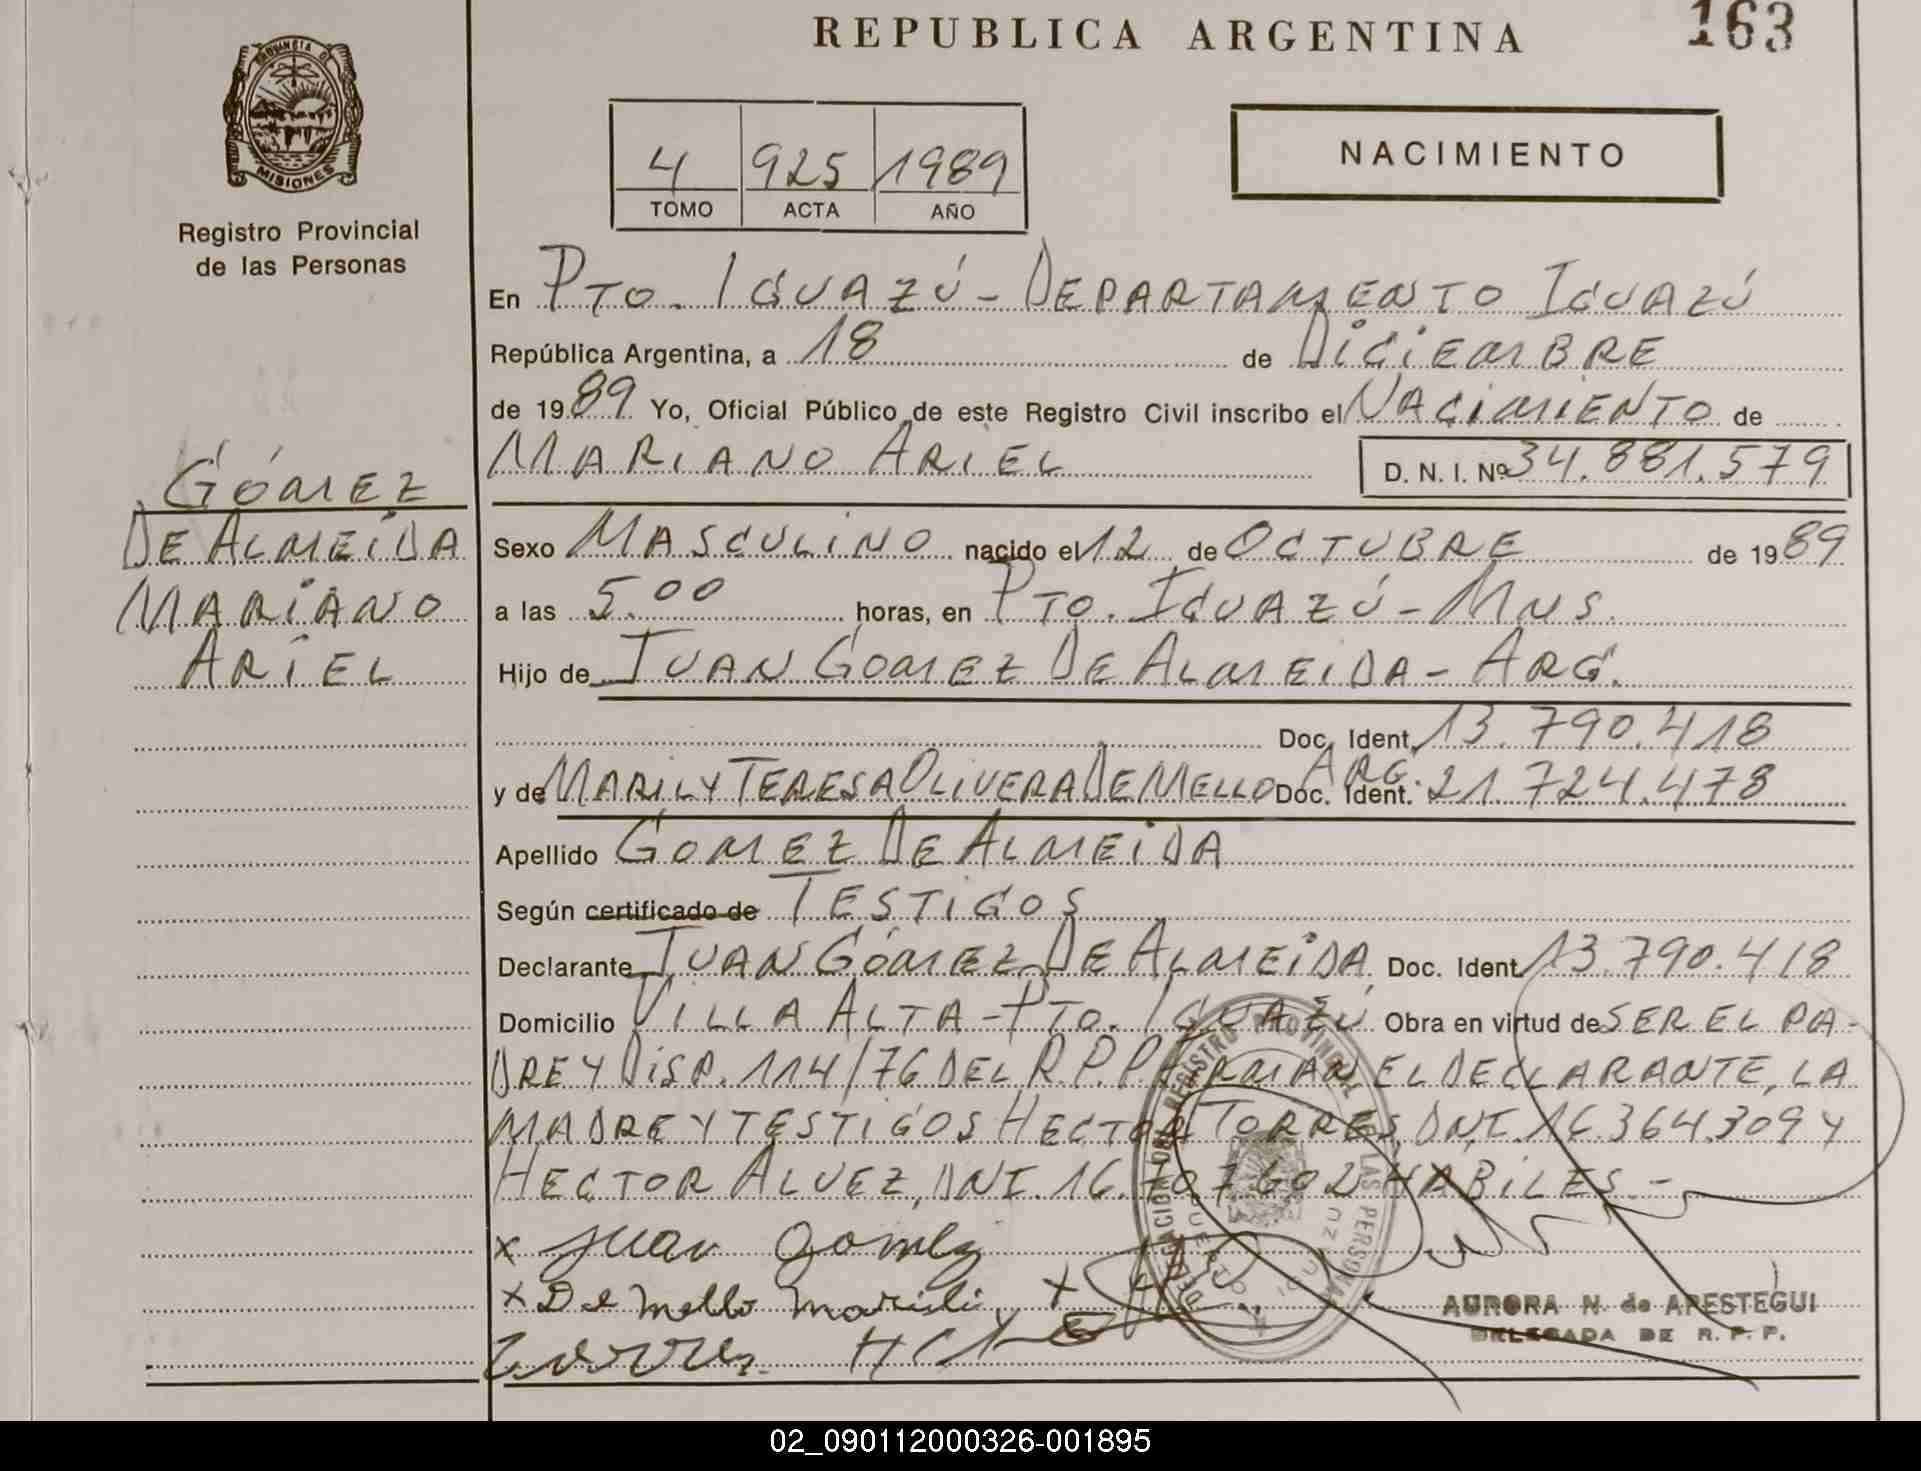 REPUBLICA ARGENTINA
163
PROVINCIA DE
MISIONES
Registro Provincial
de las Personas
4 925 1989
TOMO ACTA AÑO
NACIMIENTO
En PTO. IGUAZÚ - DEPARTAMENTO IGUAZÚ
República Argentina, a 18 de DICIEMBRE
de 1989 Yo, Oficial Público de este Registro Civil inscribo el NACIMIENTO de
MARIANO ARIEL D. N. I. Nº 34.881.579
GÓMEZ
DE ALMEIDA
MARIANO
ARIEL
Sexo MASCULINO nacido el 12 de OCTUBRE de 1989
a las 5.00 horas, en PTO. IGUAZÚ - MNS.
Hijo de JUAN GOMEZ DE ALMEIDA - ARG.
Doc. Ident. 13.790.418
y de MARILY TERESA OLIVERA DE MELLO ARG. Doc. Ident. 21.724.478
Apellido GOMEZ DE ALMEIDA
Según certificado de TESTIGOS
Declarante JUAN GÓMEZ DE ALMEIDA Doc. Ident. 13.790.418
Domicilio VILLA ALTA - PTO. IGUAZÚ Obra en virtud de SER EL PA-
DRE Y DISP. 114/76 DEL R.P.P. FIRMAN EL DECLARANTE, LA
MADRE Y TESTIGOS HECTOR TORRES, DNI. 16.364.309 Y
HECTOR ALVEZ, DNI. 16.707.602 HABILES.-
x Juan Gomez
x De Mello Marili x
Torres H
DELEGACION DEL REGISTRO PROVINCIAL DE LAS PERSONAS
PUERTO IGUAZU
AURORA N. de ARESTEGUI
DELEGADA DE R. P. P.
02_090112000326-001895